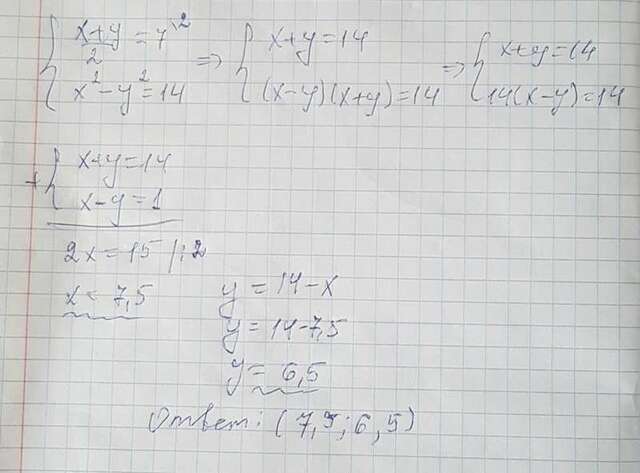 { x+y/2 = 7 \2 => { x+y=14 => { x+y=14
x²-y²=14 (x-y)(x+y)=14 14(x-y)=14
+ { x+y=14
x-y=1
2x=15 |:2
x=7,5 y=14-x
y=14-7,5
y=6,5
Ответ: (7,5;6,5)